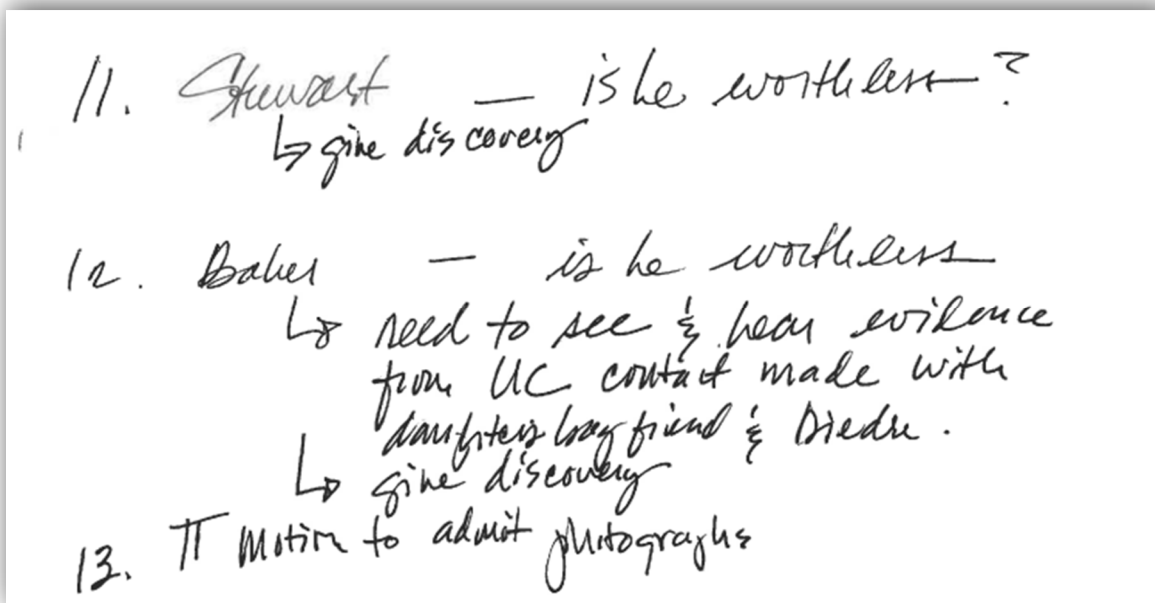 11. Stewart — is he worthless?
↳ give discovery
12. Baker — is he worthless
↳ need to see & hear evidence
from UC contact made with
daughters boyfriend & Diedre.
↳ give discovery
13. π Motion to admit photographs